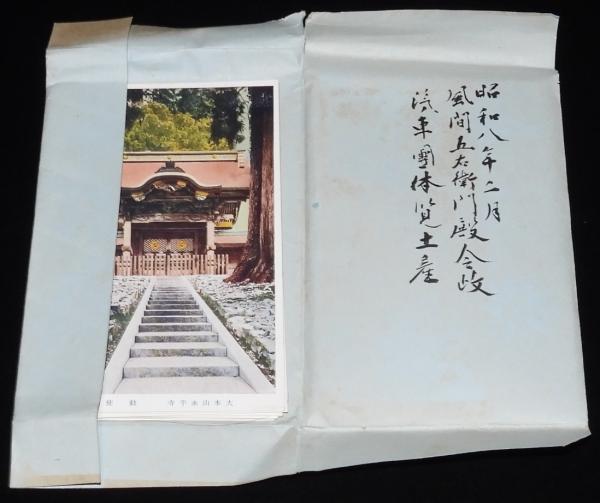 昭和八年二月
風間五右衛門殿令政
汽車團体覧土産
大本山永平寺 勅使